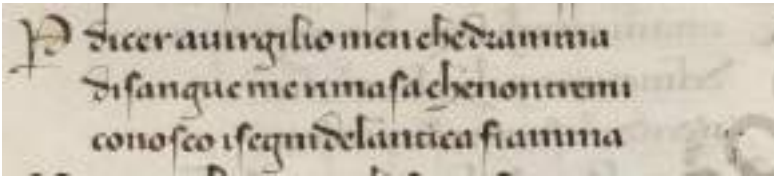 P dicer avirgilio men che dramma
di sangue me rimasa che non tremi
conosco i segni del antica fiamma